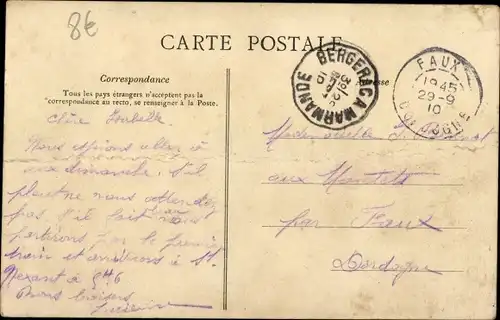 8€
CARTE POSTALE
Correspondance
Adresse
Tous les pays étrangers n'acceptent pas la
"correspondance au recto, se renseigner à la Poste.
BERGERAC A MARMANDE
FAUX
1945
29-9
10
DORDOGNE
Chère
Nous irons
aux dimanche. S'il
pleut ne nous attendez
pas s'il fait nous
partirons par le premier
train et arriverons à St
à 8h6
Bons baisers
Mademoiselle
aux
par Faux
Dordogne